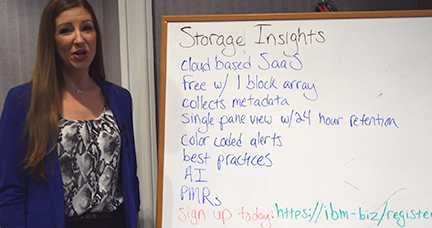 Storage Insights
cloud based SaaS
Free w/ 1 block array
collects metadata
single pane view w/24 hour retention
color coded alerts
best practices
AI
PMRs
sign up today: https://ibm-biz/register